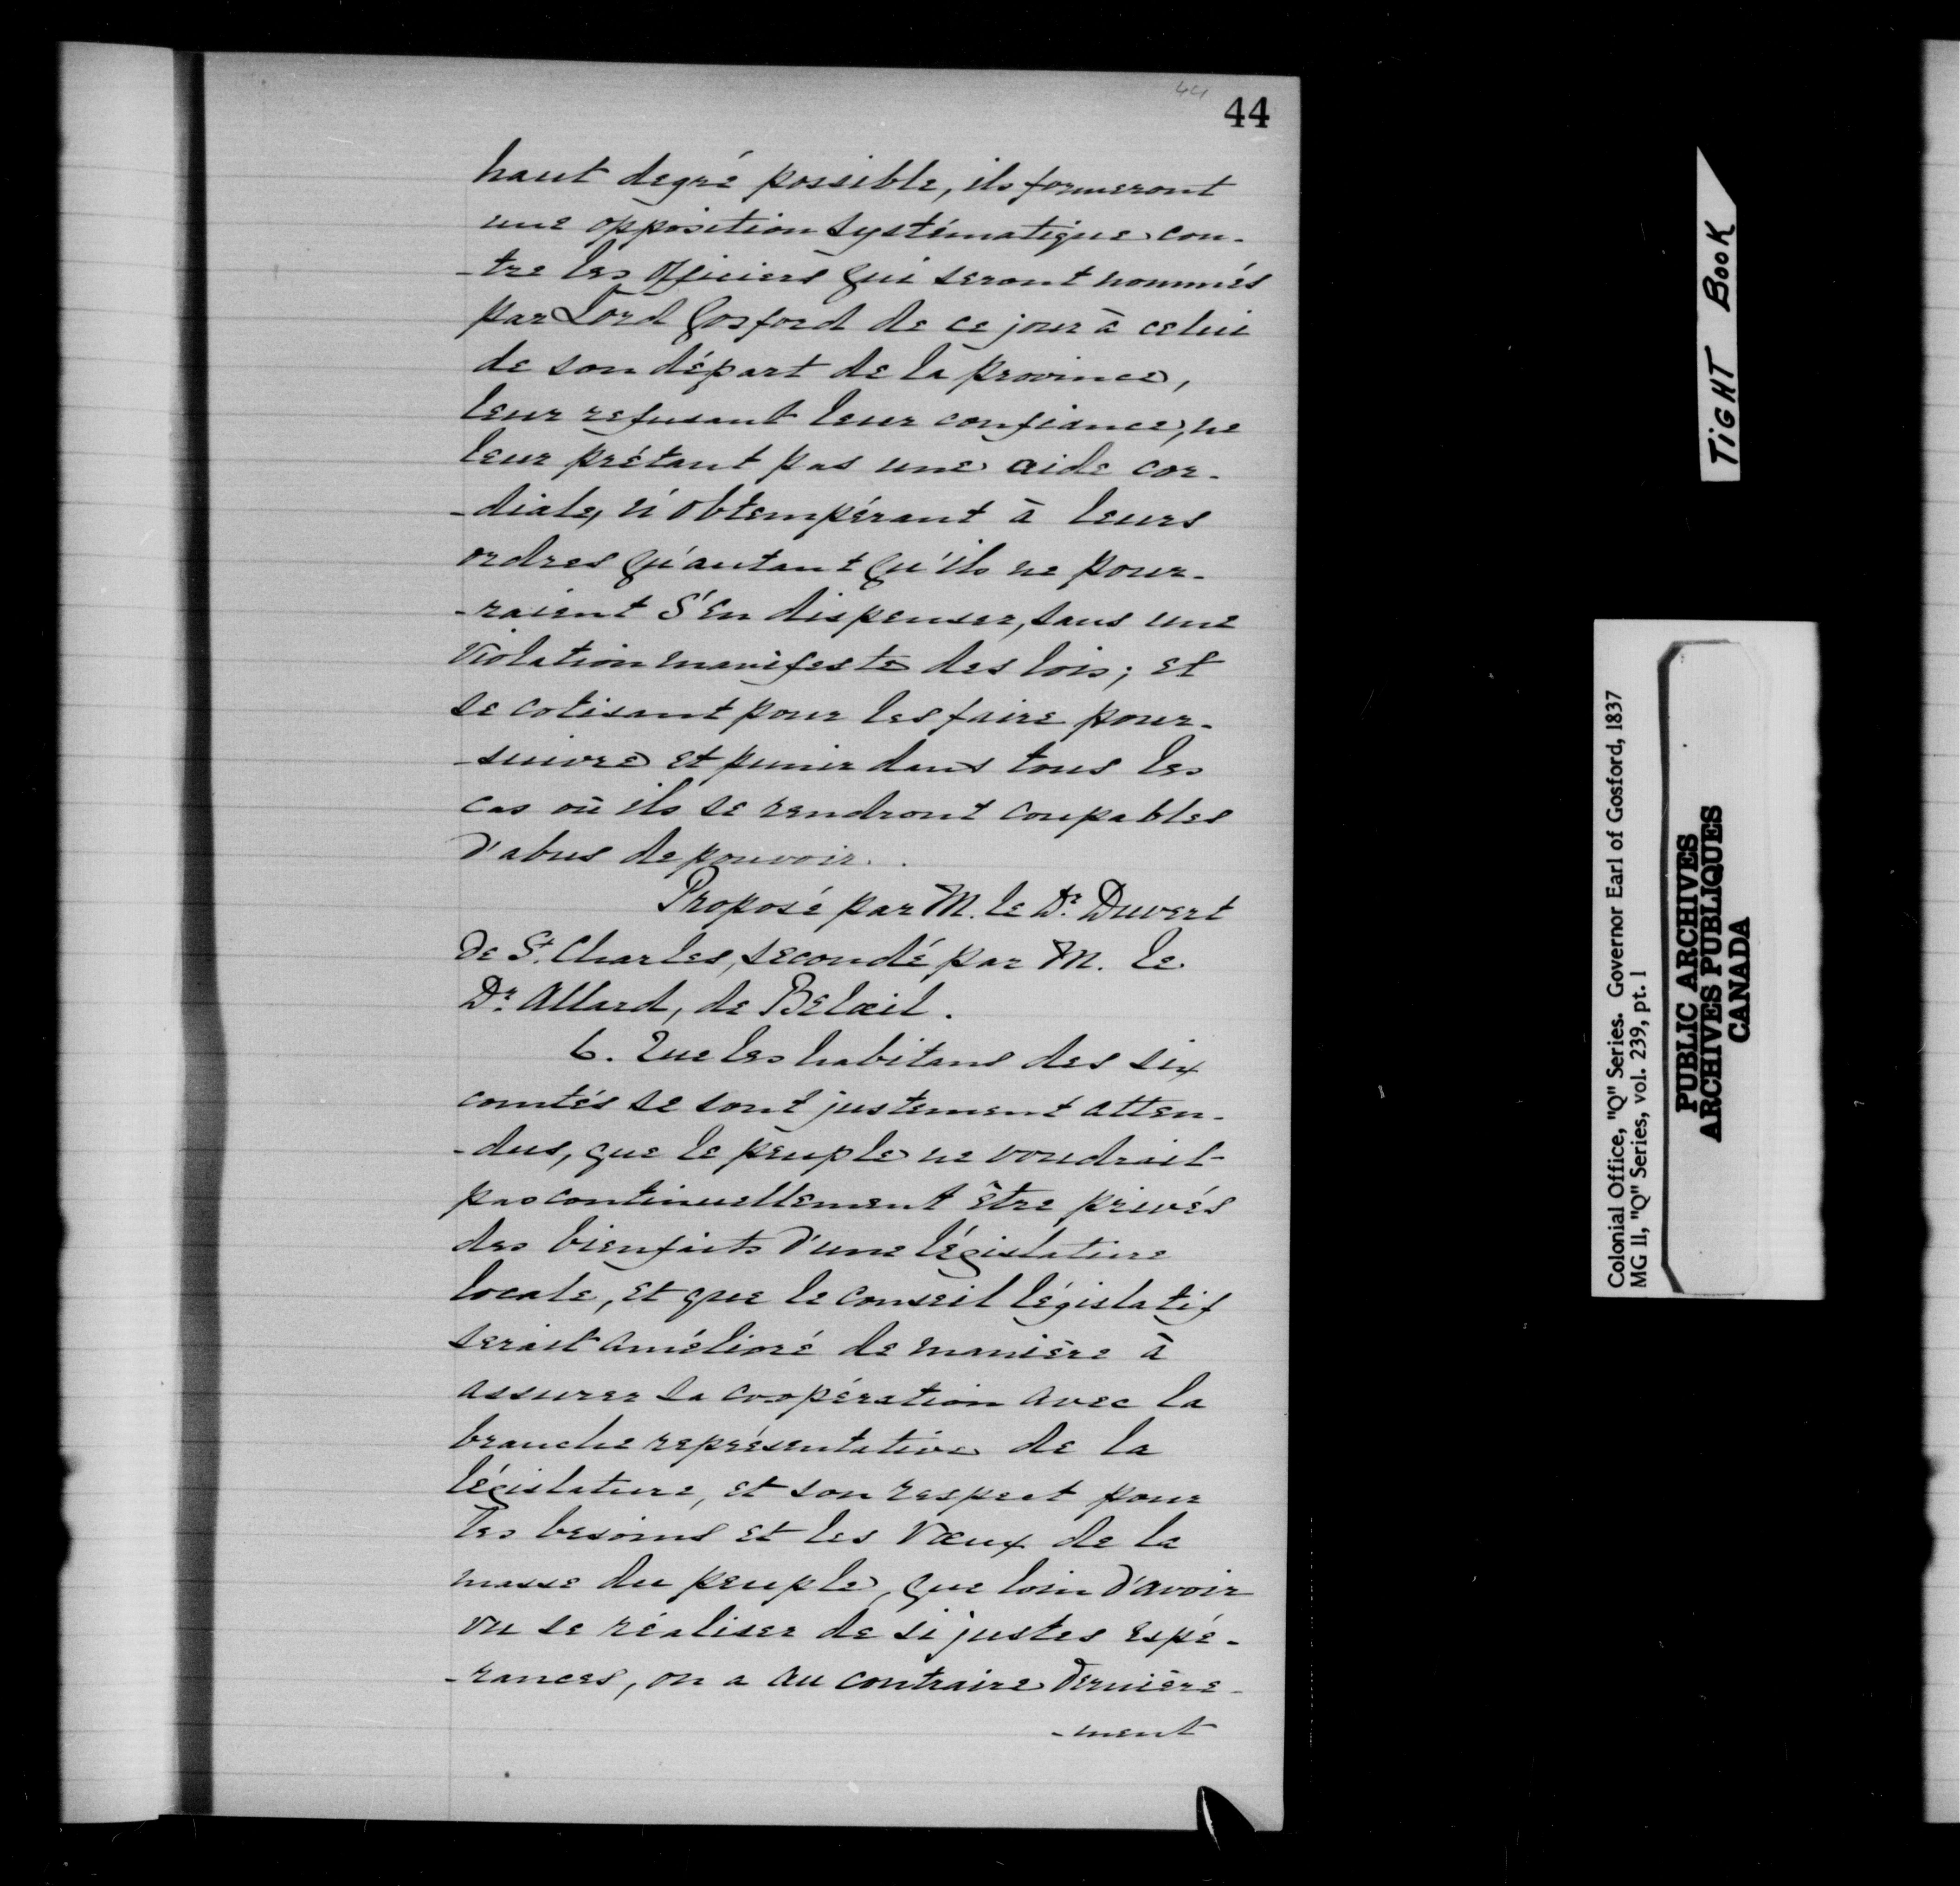 44
44
haut degré possible, ils formeront
une opposition systématique con-
-tre les officiers qui seront nommés
par Lord Gosford de ce jour à celui
de son départ de la province,
leur refusant leur confiance, ne
leur prêtant pas une aide cor-
-diale, n'obtempérant à leurs
ordres qu'autant qu'ils ne pour-
-raient s'en dispenser, sans une
violation manifeste des lois; et
se cotisant pour les faire pour-
-suivre et punir dans tous les
cas où ils se rendront coupables
d'abus de pouvoir.
Proposé par M. le Dr. Duvert
de St. Charles, secondé par M. le
Dr. Allard, de Belœil.
6. Que les habitans des six
comtés se sont justement atten-
-dus, que le peuple ne voudrait
pas continuellement être privés
des bienfaits d'une législature
locale, et que le conseil législatif
serait amélioré de manière à
assurer sa coopération avec la
branche représentative de la
législature, et son respect pour
les besoins et les vœux de la
masse du peuple, que loin d'avoir
vu se réaliser de si justes espé-
-rances, on a au contraire dernière-
-ment
TIGHT BOOK
Colonial Office, "Q" Series. Governor Earl of Gosford, 1837
MG 11, "Q" Series, vol. 239, pt. 1
PUBLIC ARCHIVES
ARCHIVES PUBLIQUES
CANADA